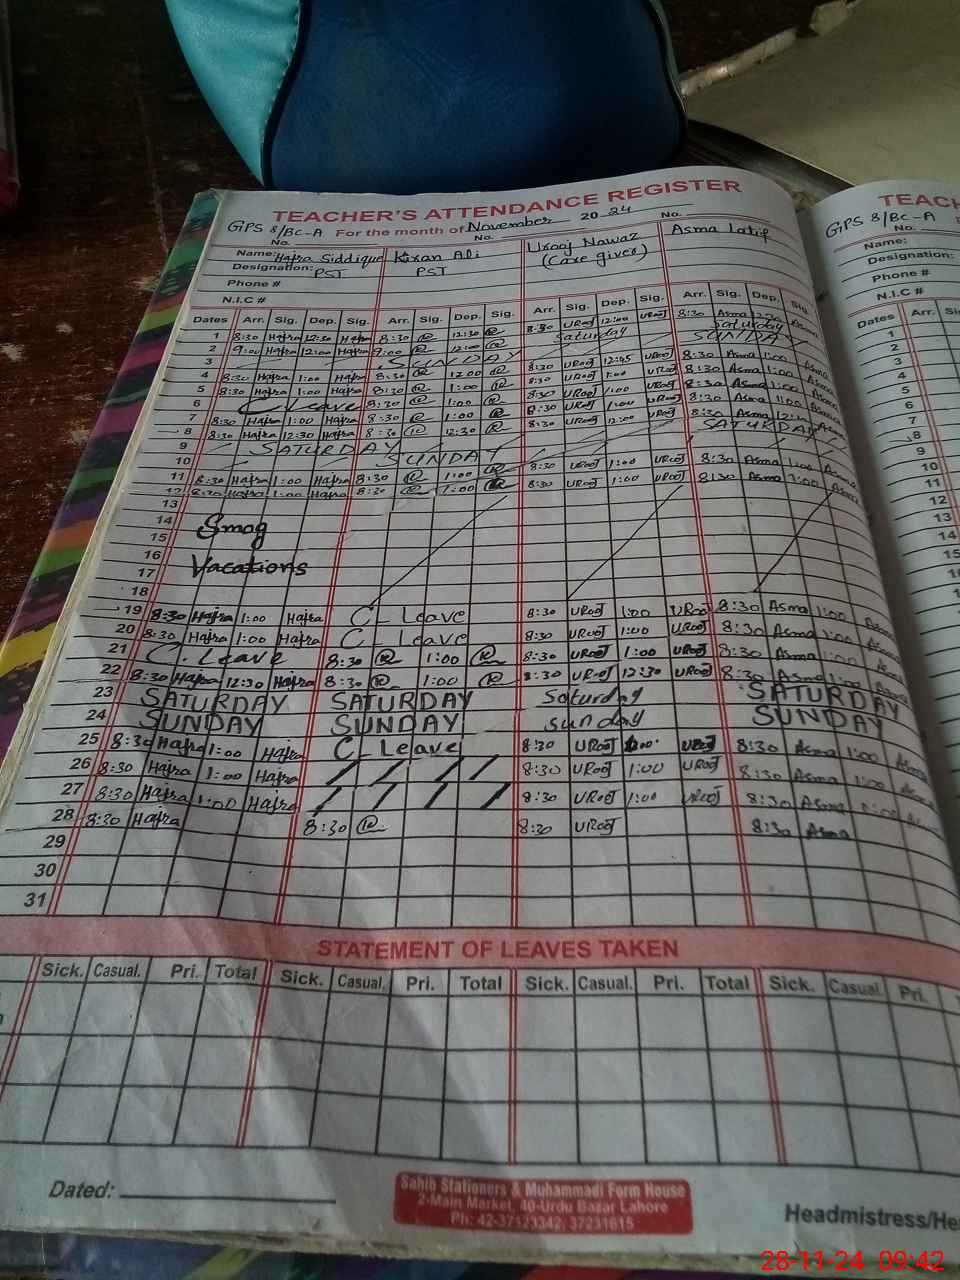 TEACHER'S ATTENDANCE REGISTER
GPS 8/BC-A For the month of November 2024
No. No. No.
Name: Hajra Siddique Kiran Ali Urooj Nawaz Asma Latif
Designation: PST PST (Care giver)
Phone #
N.I.C #
Dates Arr. Sig. Dep. Sig. Arr. Sig. Dep. Sig. Arr. Sig. Dep. Sig. Arr. Sig. Dep. Sig.
1 8:30 Hajra 12:30 Hajra 8:30 12:30 8:30 URooJ 12:00 URooJ 8:30 Asma Asma
2 9:00 Hajra 12:00 Hajra 9:00 12:00 Saturday Saturday
3 SUNDAY SUNDAY
4 8:30 Hajra 1:00 Hajra 8:30 12:00 8:30 URooJ 12:45 URooJ 8:30 Asma 1:00 Asma
5 8:30 Hajra 1:00 Hajra 8:30 1:00 8:30 URooJ 1:00 URooJ 8:30 Asma 1:00 Asma
6 C Leave 8:30 1:00 8:30 URooJ 1:00 URooJ 8:30 Asma 1:00 Asma
7 8:30 Hajra 1:00 Hajra 8:30 1:00 8:30 URooJ 1:00 URooJ 8:30 Asma 1:00 Asma
8 8:30 Hajra 12:30 Hajra 8:30 12:30 8:30 URooJ 12:00 URooJ 8:30 Asma Asma
9 SATURDAY SATURDAY
10 SUNDAY
11 8:30 Hajra 1:00 Hajra 8:30 1:00 8:30 URooJ 1:00 URooJ 8:30 Asma 1:00 Asma
12 8:30 Hajra 1:00 Hajra 8:30 1:00 8:30 URooJ 1:00 URooJ 8:30 Asma 1:00 Asma
13
14 Smog
15
16 Vacations
17
18
19 8:30 Hajra 1:00 Hajra C Leave 8:30 URooJ 1:00 URooJ 8:30 Asma 1:00 Asma
20 8:30 Hajra 1:00 Hajra C Leave 8:30 URooJ 1:00 URooJ 8:30 Asma 1:00 Asma
21 C. Leave 8:30 1:00 8:30 URooJ 1:00 URooJ 8:30 Asma 1:00 Asma
22 8:30 Hajra 12:30 Hajra 8:30 1:00 8:30 URooJ 12:30 URooJ 8:30 Asma 1:00 Asma
23 SATURDAY SATURDAY Saturday SATURDAY
24 SUNDAY SUNDAY sunday SUNDAY
25 8:30 Hajra 1:00 Hajra C Leave 8:30 URooJ URooJ 8:30 Asma 1:00 Asma
26 8:30 Hajra 1:00 Hajra 8:30 URooJ 1:00 URooJ 8:30 Asma 1:00 Asma
27 8:30 Hajra 1:00 Hajra 8:30 URooJ 1:00 URooJ 8:30 Asma 1:00 Asma
28 8:30 Hajra 8:30 8:30 URooJ 8:30 Asma
29
30
31
STATEMENT OF LEAVES TAKEN
Sick. Casual. Pri. Total Sick. Casual. Pri. Total Sick. Casual. Pri. Total Sick. Casual. Pri.
Dated:
Sahib Stationers & Muhammadi Form House
2-Main Market, 40-Urdu Bazar Lahore
Ph: 42-37123342, 37231615
Headmistress/He
TEACH
GPS 8/BC-A F
No.
Name:
Designation:
Phone #
N.I.C #
Dates Arr. S
1
2
3
4
5
6
7
8
9
10
11
12
13
14
15
28-11-24 09:42